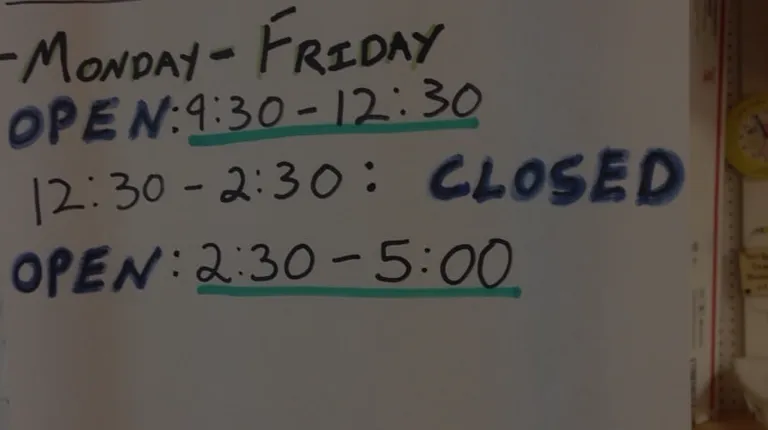 - MONDAY - FRIDAY
OPEN: 9:30 - 12:30
12:30 - 2:30: CLOSED
OPEN: 2:30 - 5:00